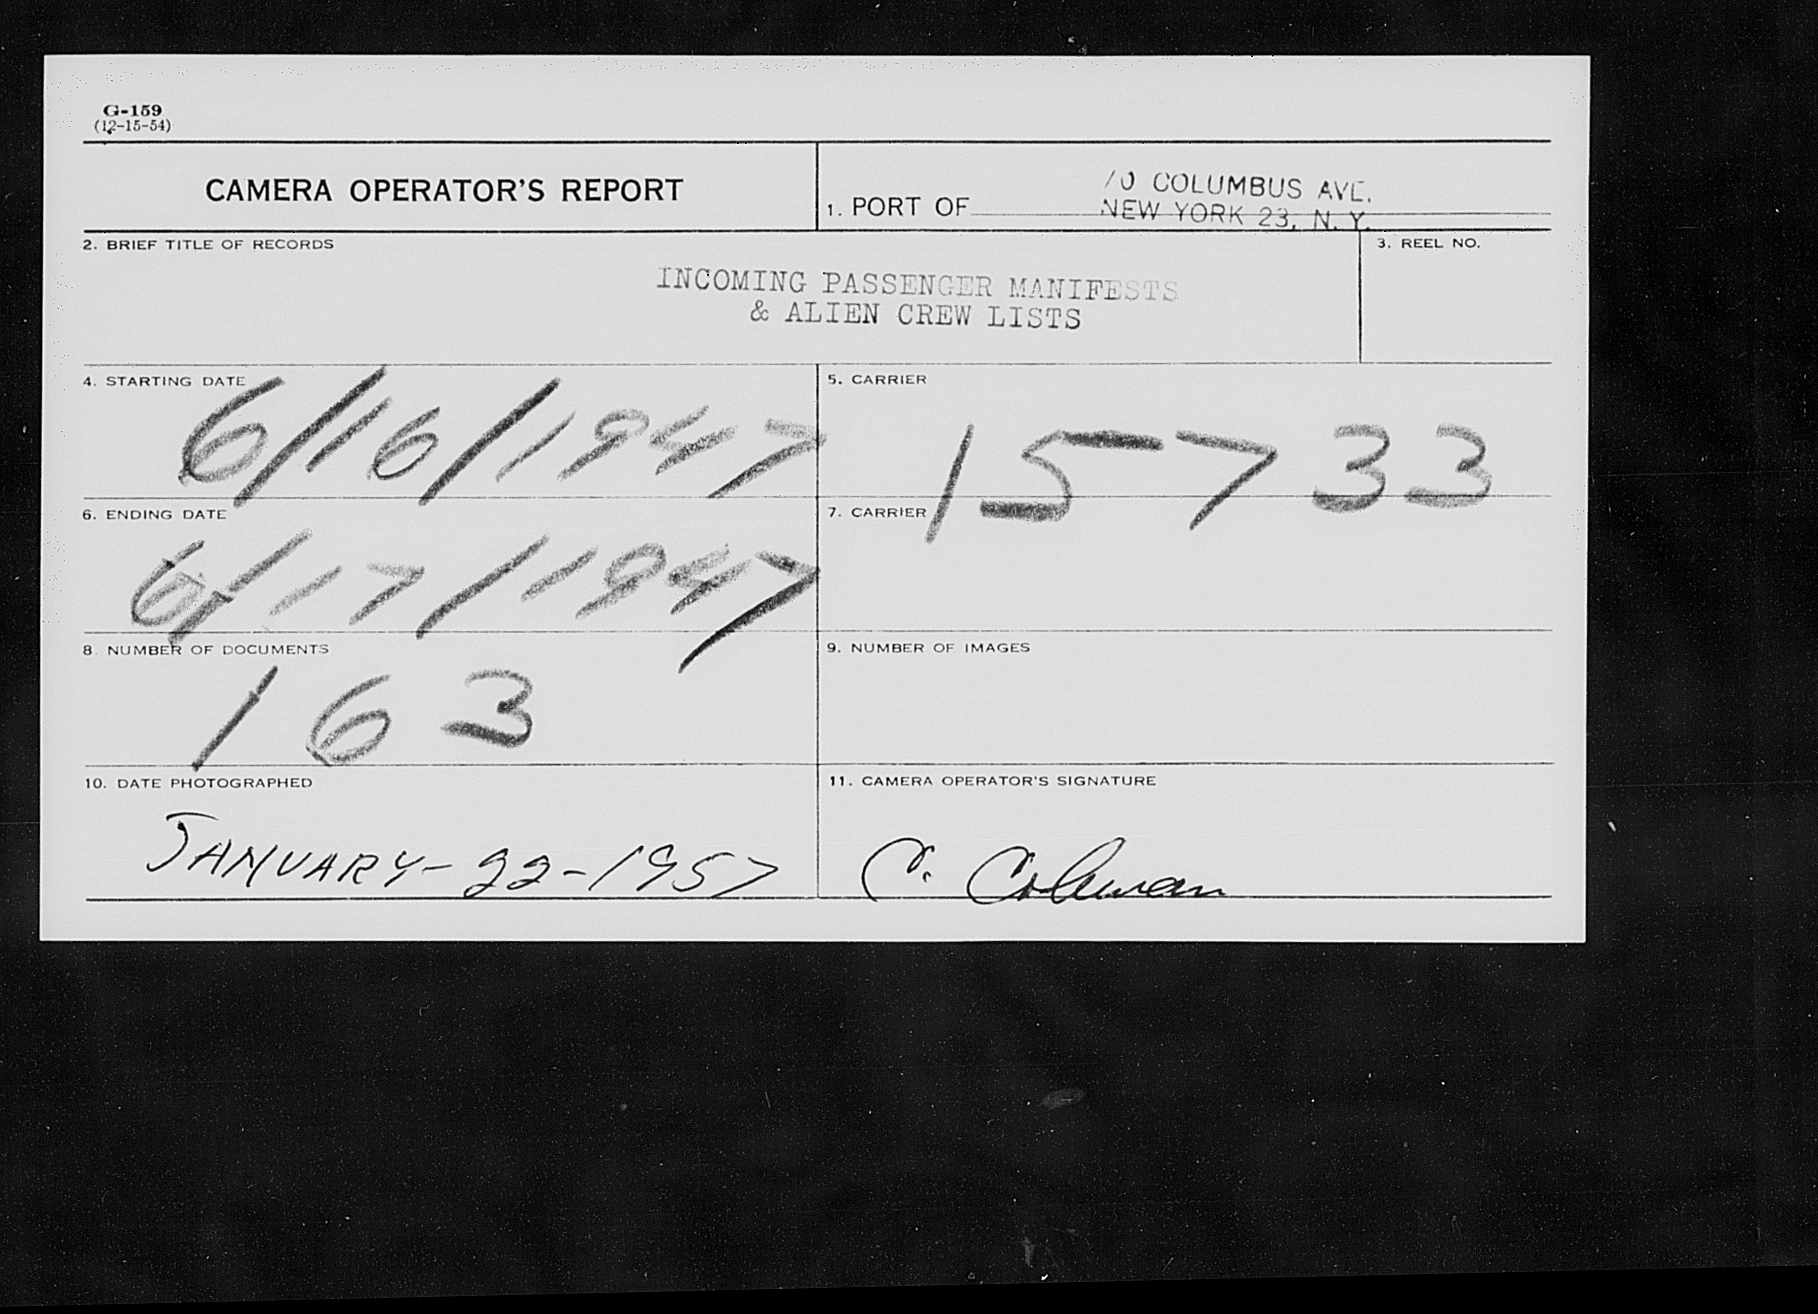 G-159
(12-15-54)
CAMERA OPERATOR'S REPORT
1. PORT OF
70 COLUMBUS AVE.
NEW YORK 23, N. Y.
2. BRIEF TITLE OF RECORDS
INCOMING PASSENGER MANIFESTS
& ALIEN CREW LISTS
3. REEL NO.
4. STARTING DATE
6/16/1947
5. CARRIER
15733
6. ENDING DATE
6/17/1947
7. CARRIER
8. NUMBER OF DOCUMENTS
163
9. NUMBER OF IMAGES
10. DATE PHOTOGRAPHED
JANUARY-22-1957
11. CAMERA OPERATOR'S SIGNATURE
C. Coleman